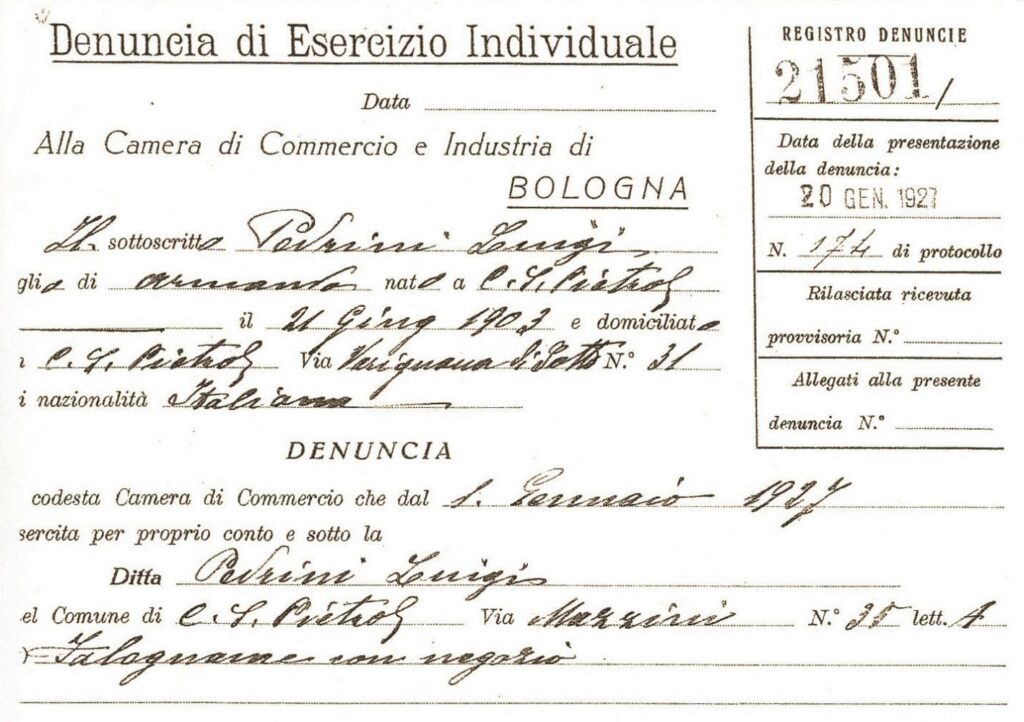 Denuncia di Esercizio Individuale
Data
Alla Camera di Commercio e Industria di
BOLOGNA
Il sottoscritto Pedrini Luigi
glio di Armando nato a C. S. Pietro
il 21 Giug 1903 e domiciliato
C. S. Pietro Via Varignana di Sotto N.° 31
i nazionalità Italiana
DENUNCIA
codesta Camera di Commercio che dal 1. Gennaio 1927
sercita per proprio conto e sotto la
Ditta Pedrini Luigi
el Comune di C. S. Pietro Via Mazzini N.° 35 lett. A
Falegname con negozio
REGISTRO DENUNCIE
21501/
Data della presentazione
della denuncia:
20 GEN. 1927
N. 174 di protocollo
Rilasciata ricevuta
provvisoria N.°
Allegati alla presente
denuncia N.°